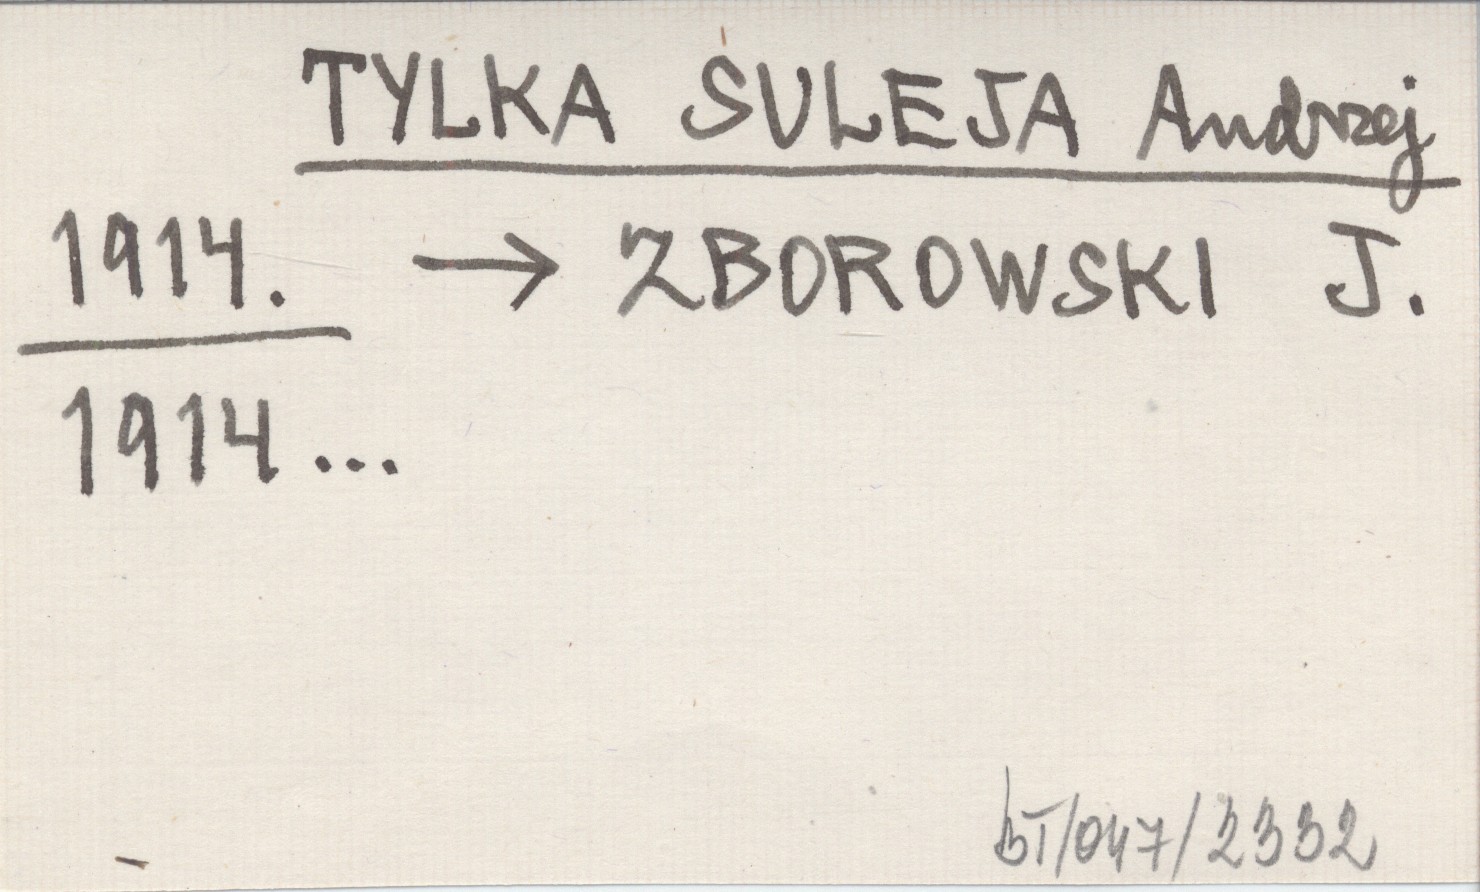 TYLKA SULEJA Andrzej
1914. → ZBOROWSKI J.
1914...
bT/047/2332